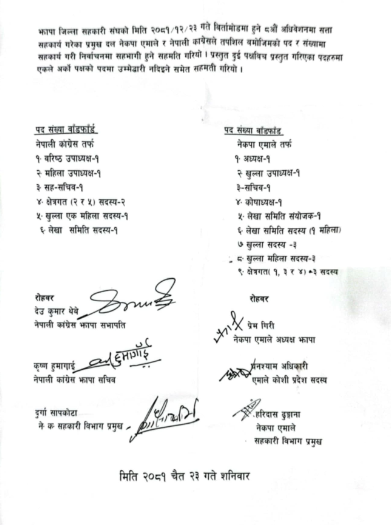 झापा जिल्ला सहकारी संघको मिति २०८१/१२/२३ गते बिर्तामोडमा हुने ८औं अधिवेशनमा सत्ता
सहकार्य गरेका प्रमुख दल नेकपा एमाले र नेपाली कांग्रेसले तपशिल बमोजिमको पद र संख्यामा
सहकार्य गरी निर्वाचनमा सहभागी हुने सहमति गरियो । प्रस्तुत दुई पक्षबिच प्रस्तुत गरिएका पदहरुमा
एकले अर्को पक्षको पदमा उम्मेद्वारी नदिइने समेत सहमती गरियो ।
पद संख्या बाँडफाँड
नेपाली कांग्रेस तर्फ
१. बरिष्ठ उपाध्यक्ष-१
२. महिला उपाध्यक्ष-१
३. सह-सचिव-१
४. क्षेत्रगत (२ र ५) सदस्य-२
५. खुल्ला एक महिला सदस्य-१
६. लेखा समिति सदस्य-१
पद संख्या बाँडफाँड
नेकपा एमाले तर्फ
१. अध्यक्ष-१
२. खुल्ला उपाध्यक्ष-१
३-सचिव-१
४. कोषाध्यक्ष-१
५. लेखा समिति संयोजक-१
६. लेखा समिति सदस्य (१ महिला)
७ खुल्ला सदस्य -३
८. खुल्ला महिला सदस्य-३
९. क्षेत्रगत( १, ३ र ४) -३ सदस्य
रोहबर
देउ कुमार थेबे
नेपाली कांग्रेस झापा सभापति
रोहबर
प्रेम गिरी
नेकपा एमाले अध्यक्ष झापा
कृष्ण हुमागाई
नेपाली कांग्रेस झापा सचिव
घनश्याम अधिकारी
एमाले कोशी प्रदेश सदस्य
दुर्गा सापकोटा
ने. क सहकारी विभाग प्रमुख
हरिदास ढुङ्गाना
नेकपा एमाले
सहकारी विभाग प्रमुख
मिति २०८१ चैत २३ गते शनिवार